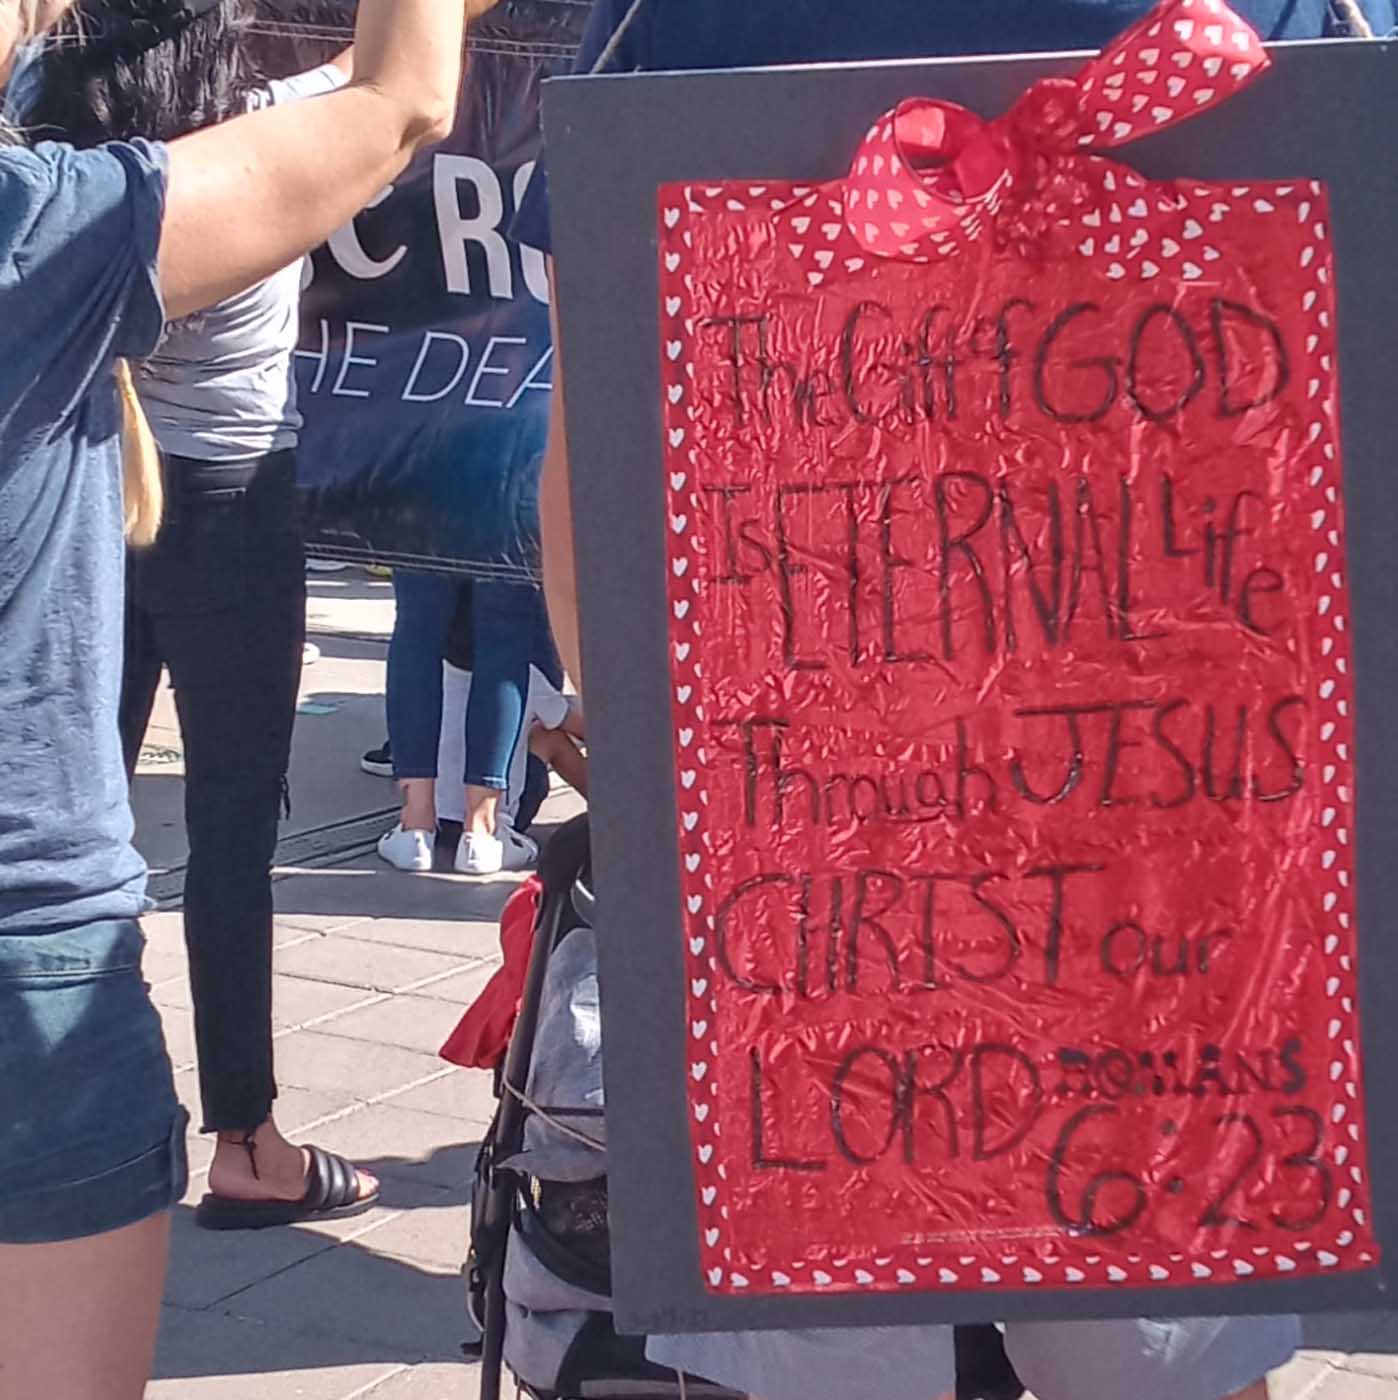 C RO
HE DEA
The Gift of GOD
Is ETERNAL Life
Through JESUS
CHRIST our
LORD ROMANS
6:23